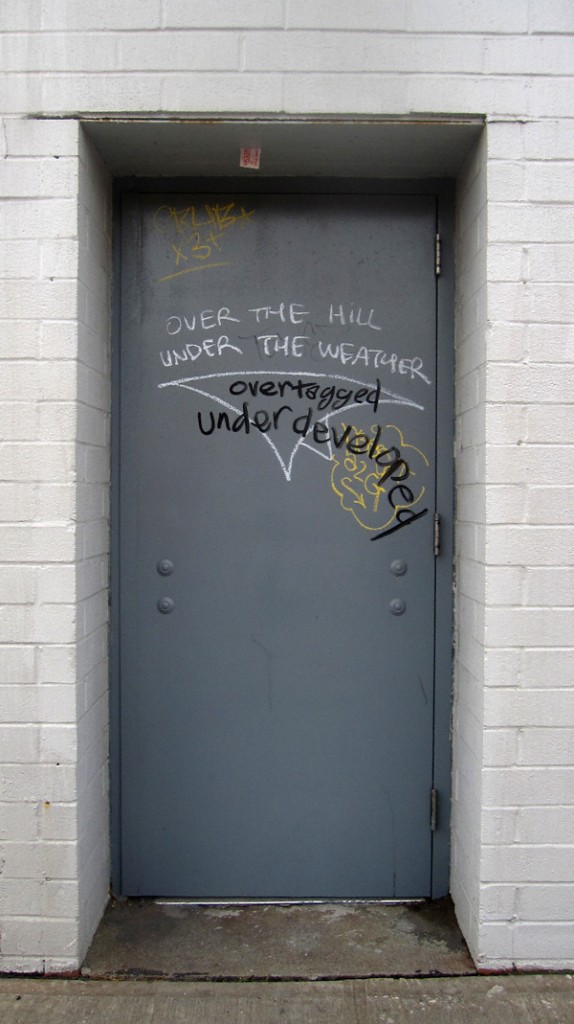 x3+
OVER THE HILL
UNDER THE WEATHER
overtagged
underdeveloped